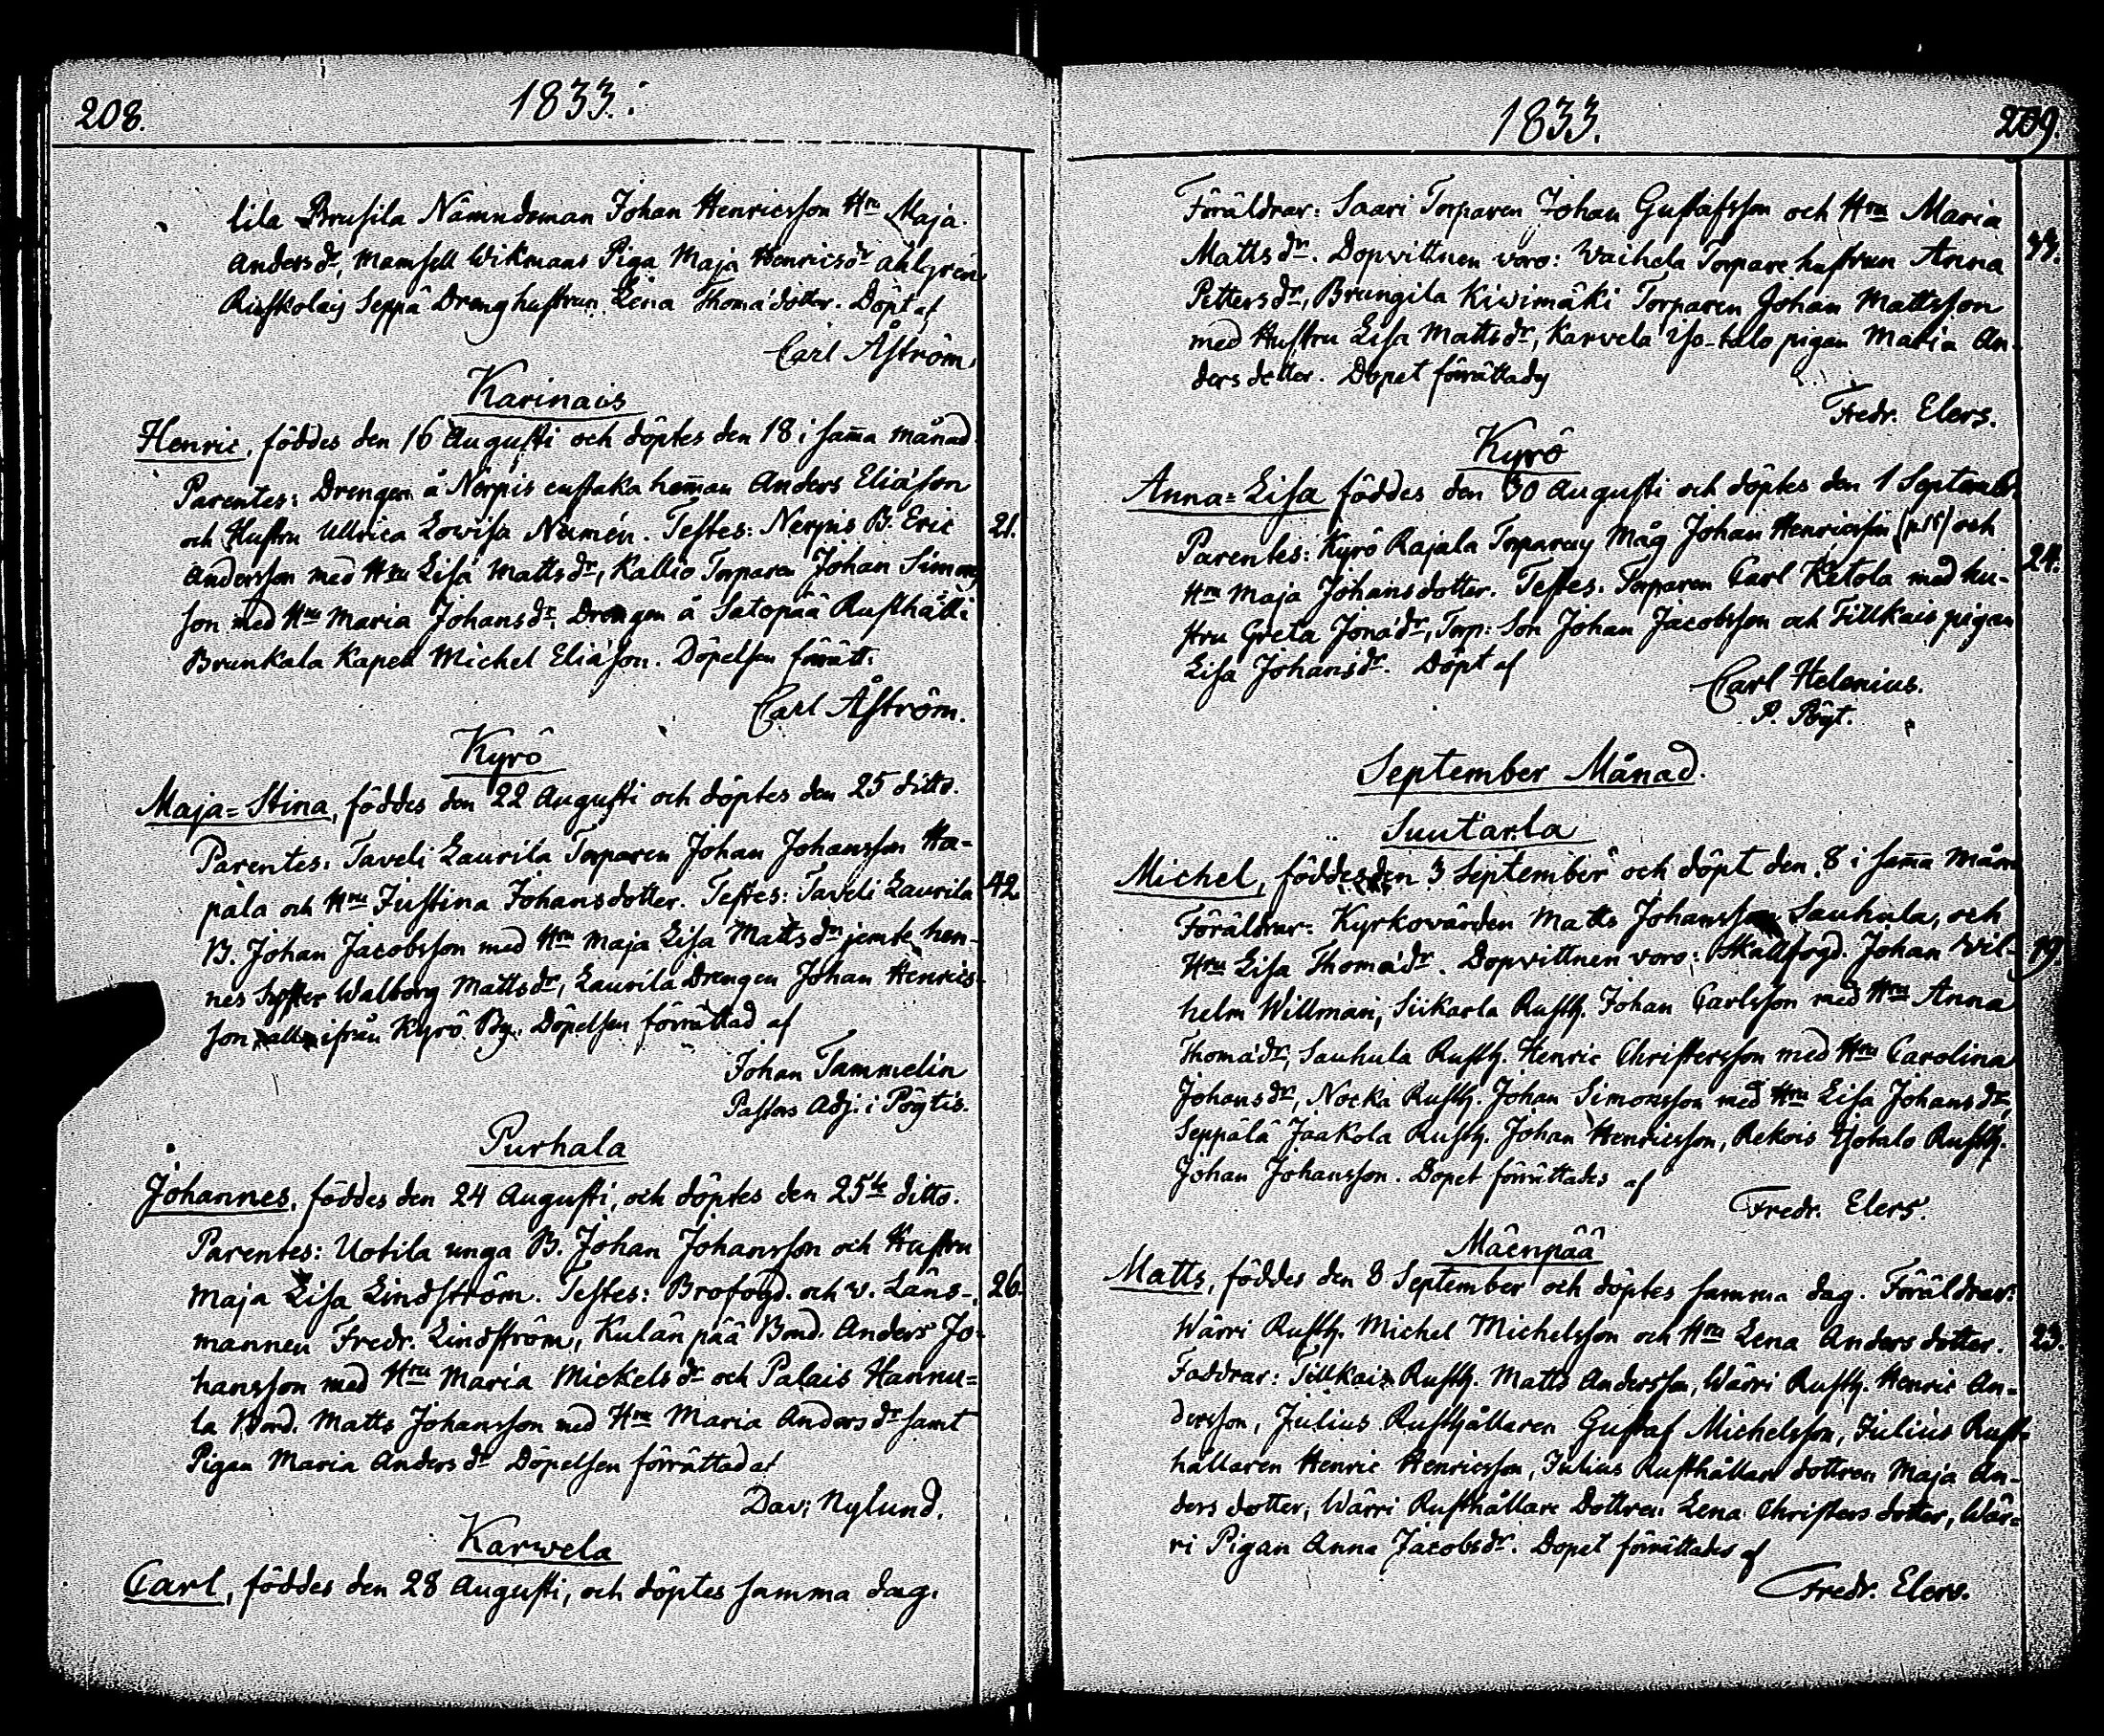 208.
1833.
lila Brusila Nämndeman Johan Henricsson Hru Maja
Andersdr, Mamsell Wikmans Piga Maja Henricsdr Ahlgren
Seppä Drenghustrun Lena Thomädotter. Döpt af
Carl Åström.
Karinais
Henric, föddes den 16 Augusti och döptes den 18 i samma månad
Parentes: Drengen å Nerpis enstaka heman Anders Eliäson
och Hustru Ullrica Lowisa Numén. Testes: Nerpis B. Eric
21.
Andersson med Hru Lisa Mattsdr, Kallio Torparen Johan Simons
son med Hru Maria Johansdr, Drengen å Satopää Rusthåll i
Brunkala Kapell Michel Eliäson. Döpelsen förrätt.
Carl Åström.
Kyrö
Maja=Stina, föddes den 22 Augusti och döptes den 25 ditto.
Parentes: Taveli Laurila Torparen Johan Johansson Ha-
pala och Hru Justina Johansdotter. Testes: Taveli Laurila
42
B. Johan Jacobsson med Hru Maja Lisa Mattsdr jemte hen-
nes Syster Walborg Mattsdr, Laurila Drengen Johan Henrics-
son alla ifrån Kyrö By. Döpelsen förrättad af
Johan Tammelin
Pastors Adj. i Pöytis.
Purhala
Johannes, föddes den 24 Augusti, och döptes den 25te ditto.
Parentes: Uotila unga B. Johan Johansson och Hustru
Maja Lisa Lindström. Testes: Brofogd. och v. Läns-
26.
mannen Fredr. Lindström, Kulänpää Bond. Anders Jo-
hansson med Hru Maria Mickelsdr och Palais Hannu=
la Bond. Matts Johansson med Hru Maria Andersdr samt
Pigan Maria Andersdr Döpelsen förrättad af
Dav: Nylund.
Karwela
Carl, föddes den 28 Augusti, och döptes samma dag.
1833.
209.
Föräldrar: Saari Torparen Johan Gustafsson och Hru Maria
33.
Mattsdr. Dopvittnen voro: Waihela Torpare hustrun Anna
Pettersdr, Brungila Kiwimäki Torparen Johan Mattsson
med Hustru Lisa Mattsdr, Karwela Iso-talo pigan Maria An-
dersdotter. Dopet förrättades
Fredr. Elers.
Kyrö
Anna=Lisa föddes den 30 Augusti och döptes den 1 Septembr.
Parentes: Kyrö Rajala Torparens Måg Johan Henricsson och
24.
Hru Maja Johansdotter. Testes: Torparen Carl Ketola med hu-
stru Greta Jonädr, Torp: Son Johan Jacobsson och Tillkais pigan
Lisa Johansdr. Döpt af
Carl Helenius.
P. Pöyt.
September Månad.
Suutarla
Michel, föddes den 3 September och döpt den 8 i samma mån
Föräldrar: Kyrkovärden Matts Johansson Sauhula, och
19.
Hru Lisa Thomädr. Dopvittnen voro: Skallfogd. Johan Wil-
helm Willman, Siikarla Rusth. Johan Carlsson med Hru Anna
Thomädr, Sauhula Rusth. Henric Christersson med Hru Carolina
Johansdr, Nocka Rusth. Johan Simonsson med Hru Lisa Johansdr,
Seppälä Jaakola Rusth. Johan Henricsson, Rekois Isotalo Rusth.
Johan Johansson. Dopet förrättades af
Fredr. Elers.
Mäenpää
Matts, föddes den 8 September och döptes samma dag. Föräldrar:
Wärri Rusth. Michel Michelsson och Hru Lena Andersdotter.
23.
Faddrar: Tillkais Rusth. Matts Andersson, Wärri Rusth. Henric An-
dersson, Julius Rusthållaren Gustaf Michelsson, Julius Rust-
hållaren Henric Henricsson, Julius Rusthållare dottren Maja An-
dersdotter, Wärri Rusthållare Dottren Lena Christersdotter, Wär=
ri Pigan Anna Jacobsdr. Dopet förrättades af
Fredr. Elers.